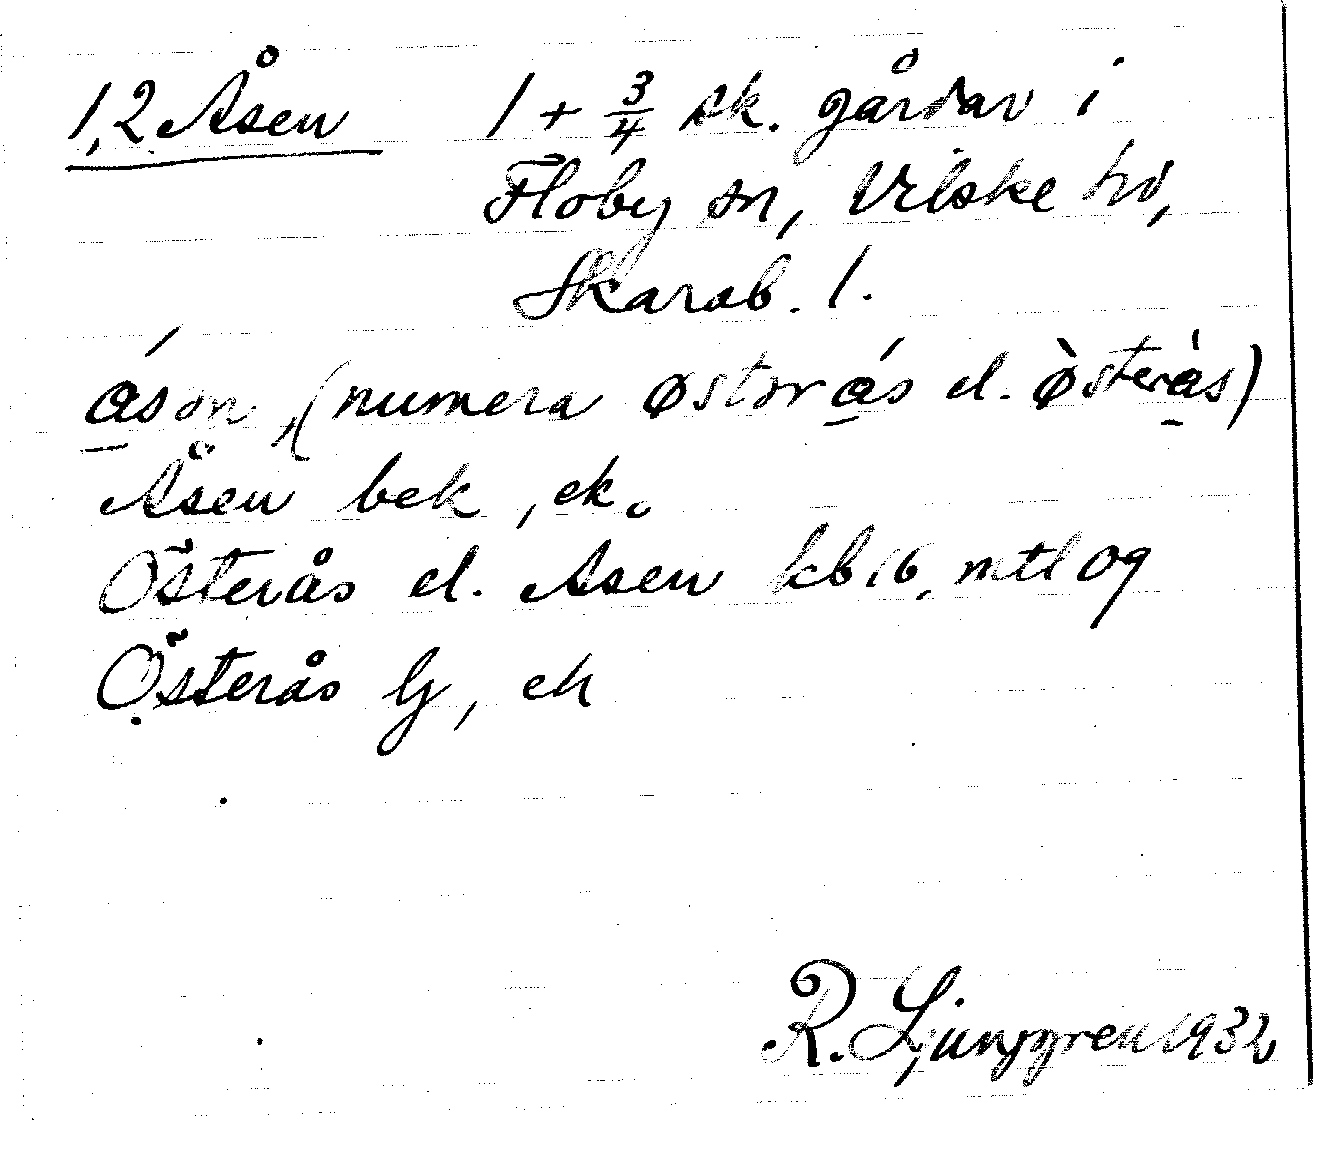 1,2 Åsen 1 + 3/4 sk. gårdar i
Floby sn, Vilske hd,
Skarab. l.
ásən, (numera østərás el. òsteràs)
Åsen bek, ek.
Österås el. Åsen kb 16, mtl 09
Österås lj, ek
R. Ljunggren 1932